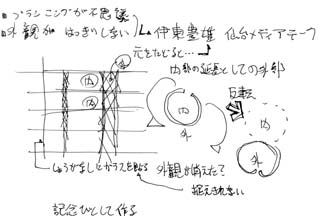 ■プランニングが不思議
■外観がはっきりしない
伊東豊雄 仙台メディアテーク
元をたどると…
内部の延長としての外部
内
内
内
外
反転
内
外
しょうがなしとガラスを貼る
外観が消えたて
捉えきれない
記念びとして作る